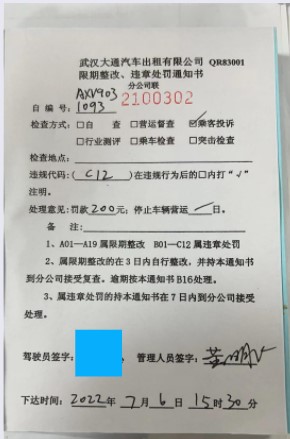 武汉大通汽车出租有限公司 QR83001
限期整改、违章处罚通知书
分公司联
AXV903
自编号: 1093 2100302
检查方式: □自 查 □营运督查 ☑乘客投诉
□行业测评 □乘车检查 □突击检查
检查地点:
违规代码: ( C12 ) 在违规行为后的□内打“√”
注明。
处理意见: 罚款 200 元; 停止车辆营运 / 日。
备 注:
1、A01—A19 属限期整改 B01—C12 属违章处罚
2、属限期整改的在 3 日内自行整改, 并持本通知书
到分公司接受复查。逾期按本通知书 B16 处理。
3、属违章处罚的持本通知书在 7 日内到分公司接受
处理。
驾驶员签字: , 管理人员签字:
下达时间: 2022 年 7 月 6 日 15 时 30 分